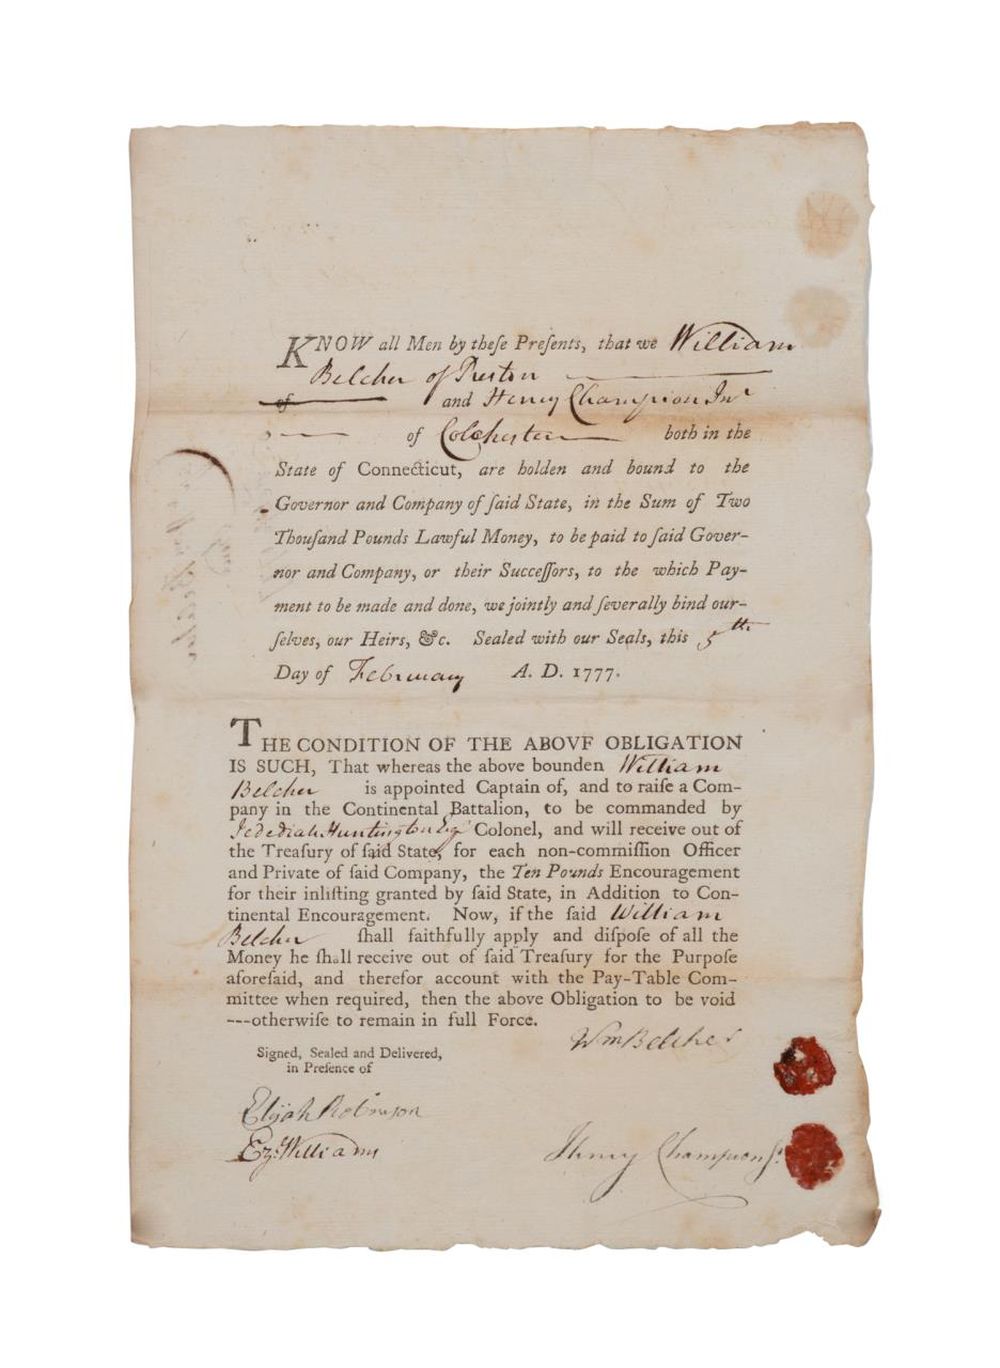 KNOW all Men by theſe Preſents, that we William
Belcher of Preston
of and Henry Champion Junr
of Colchester both in the
State of Connecticut, are holden and bound to the
Governor and Company of ſaid State, in the Sum of Two
Thouſand Pounds Lawful Money, to be paid to ſaid Gover-
nor and Company, or their Succeſſors, to the which Pay-
ment to be made and done, we jointly and ſeverally bind our-
ſelves, our Heirs, &c. Sealed with our Seals, this 5th
Day of February A. D. 1777.
THE CONDITION OF THE ABOVE OBLIGATION
IS SUCH, That whereas the above bounden William
Belcher is appointed Captain of, and to raiſe a Com-
pany in the Continental Battalion, to be commanded by
Jedediah Huntington Esqr Colonel, and will receive out of
the Treaſury of ſaid State, for each non-commiſſion Officer
and Private of ſaid Company, the Ten Pounds Encouragement
for their inliſting granted by ſaid State, in Addition to Con-
tinental Encouragement. Now, if the ſaid William
Belcher ſhall faithfully apply and diſpoſe of all the
Money he ſhall receive out of ſaid Treaſury for the Purpoſe
aforeſaid, and therefor account with the Pay-Table Com-
mittee when required, then the above Obligation to be void
---otherwiſe to remain in full Force.
Wm Belcher
Signed, Sealed and Delivered,
in Preſence of
Elijah Robinson
Ez: Williams
Henry Champion Jr